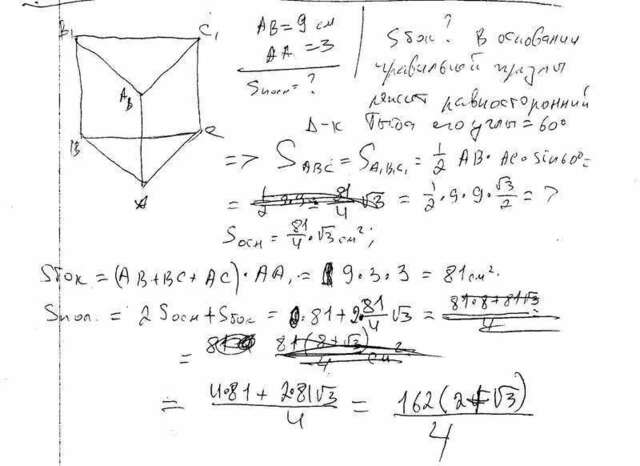 B₁ C₁
A₁
B C
A
AB=9 см
AA₁=3
Sполн=?
Sбок? В основании
правильной призмы
лежит равносторонний
Δ-к Тогда его углы=60°
=> S_ABC = S_A₁B₁C₁ = 1/2 AB·AC·sin60°=
= 1/2·9·9·√3/2 =>
Sосн = 81/4·√3 см²;
Sбок = (AB+BC+AC)·AA₁ = 9·3·3 = 81см².
Sпол. = 2Sосн+Sбок = 81+2·81/4√3 =
= (4·81+2·81√3)/4 = 162(2+√3)/4